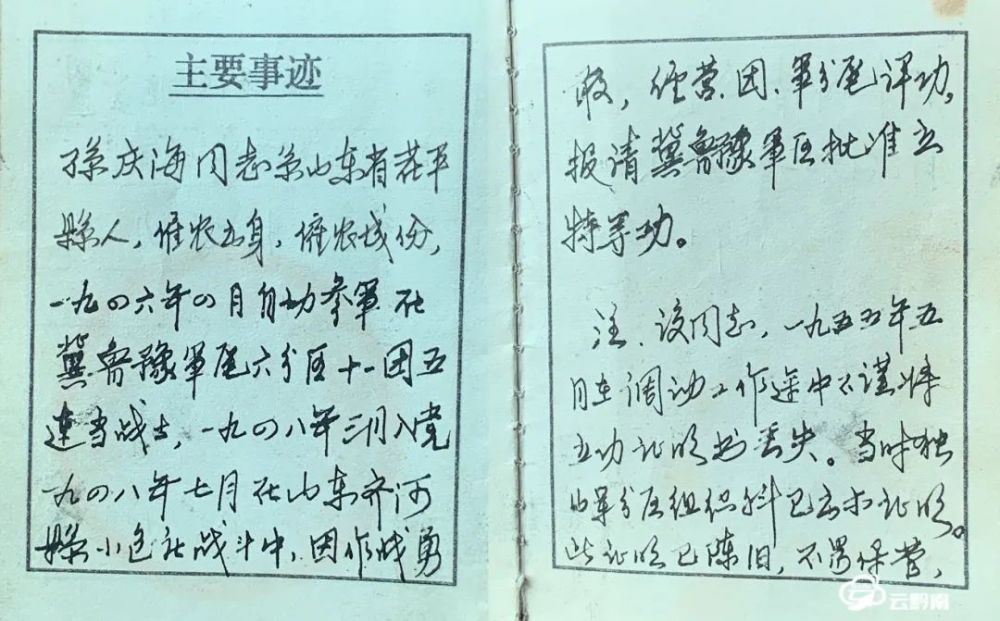 主要事迹
孫庆海同志系山东省茌平
縣人，雇农出身，雇农成份，
一九四六年四月自动参軍在
冀鲁豫軍区六分区十一团五
连当战士，一九四八年三月入党
一九四八年七月在山东齐河
縣小包社战斗中，因作战勇
敢，经营、团、軍分区评功，
报请冀鲁豫軍区批准立
特等功。
注：该同志，一九五五年五
月在调动工作途中不谨将
立功证明书丢失。当时独
山军分区组织科已出示证明。
此证明已陈旧，不易保管，
云黔南